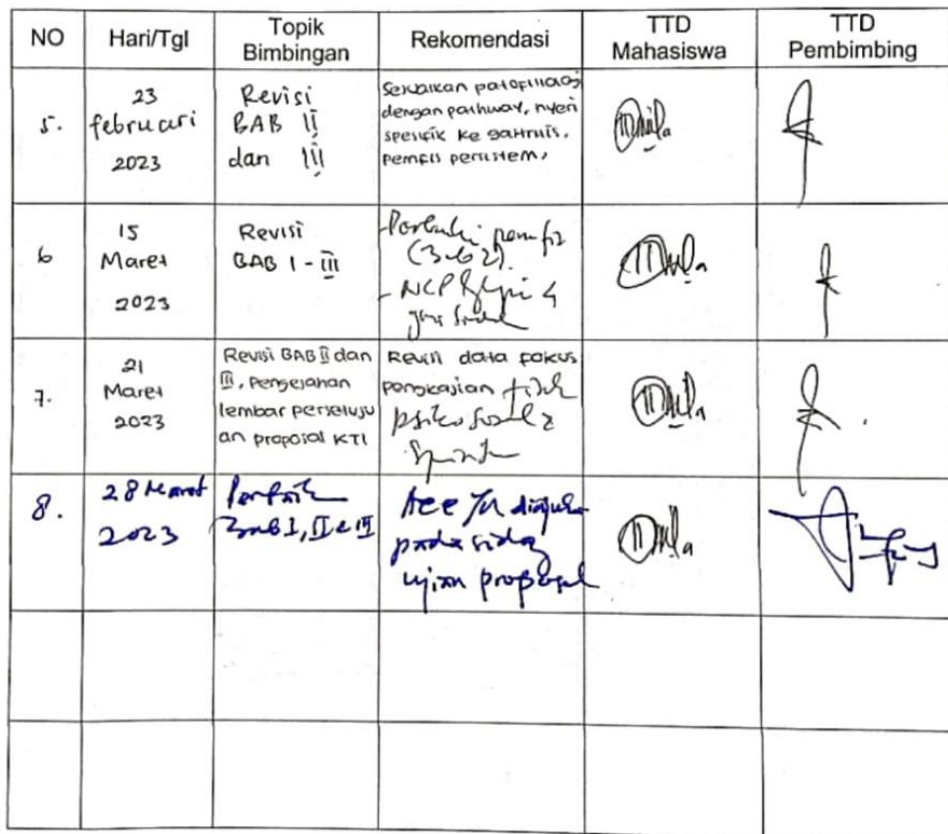 NO Hari/Tgl Topik Bimbingan Rekomendasi TTD Mahasiswa TTD Pembimbing
5.
23
februari
2023
Revisi
BAB II
dan III
Sesuaikan patofisiologi
dengan pathway, nyeri
spesifik ke gastritis.
pemfis persistem,
6
15
Maret
2023
Revisi
BAB I - III
- Perbaiki pemfis
(3-6 2).
- NCP
7.
21
Maret
2023
Revisi BAB II dan
III, pengesahan
lembar persetuju
an proposal KTI
Revisi data fokus
pengkajian
psikososial &
8.
28 Maret
2023
Bab I, II & III
Acc
pada sidang
ujian proposal